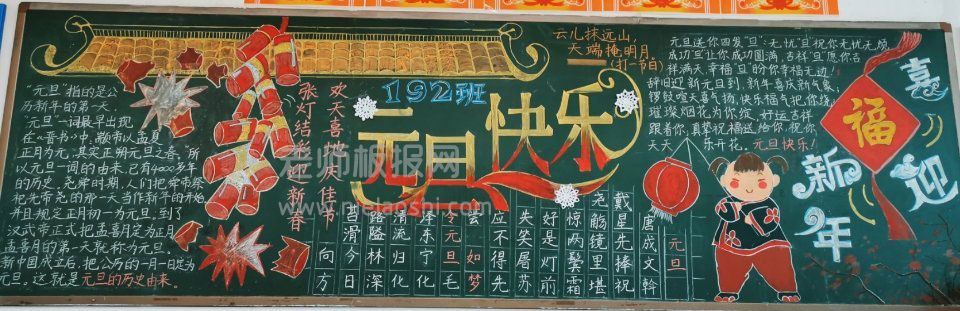 "元旦"指的是公
历新年的第一天。
"元旦"一词最早出现
在《晋书》中:颛帝以孟夏
正月为元,其实正朔元旦之春。所
以元旦一词的由来,已有4000多年
的历史。尧舜时期,人们把舜帝祭
祀先帝尧的那一天当作新年的开始
并且规定正月初一为元旦,到了
汉武帝正式把孟喜月定为正月
孟喜月的第一天就称为元旦。
新中国成立后,把公历的一月一日定为
元旦。这就是元旦的历史由来。
张灯结彩迎新春
欢天喜地庆佳节
192班
元旦快乐
老师板报网
mulaoshi.com
云儿抹远山,
天端掩明月。
(打一节日)
元旦送你四发"旦":无忧旦祝你无忧无烦,
成功旦让你成功圆满,吉祥旦愿你吉
祥满天,幸福旦的你幸福无边!
辞旧迎新元旦到,新年喜庆新气象,
锣鼓喧天喜气扬,快乐福气把你绕,
璀璨烟花为你绽,好运吉祥
跟着你,真挚祝福送给你,祝你
天天乐开花。元旦快乐!
元旦
唐 成文斡
戴星先捧祝
尧觞镜里堪
惊两鬓霜
好是灯前
失笑屠苏
应不得先
尝
如梦
令 元旦
毛泽东宁化
清流归化
路隘林深
苔滑今日
向方
福
喜
迎
新
年